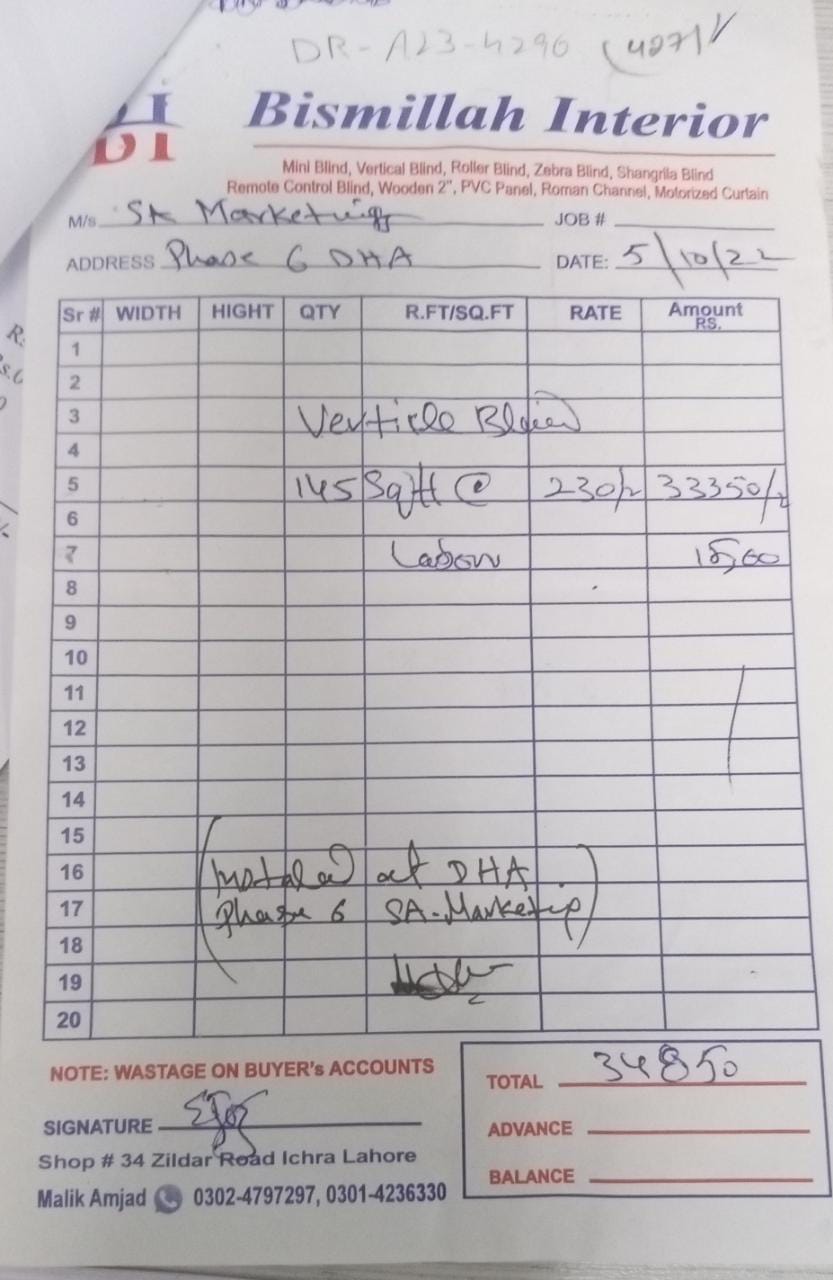 DR-A23-4296 (4271)
DI
Bismillah Interior
Mini Blind, Vertical Blind, Roller Blind, Zebra Blind, Shangrila Blind
Remote Control Blind, Wooden 2", PVC Panel, Roman Channel, Motorized Curtain
M/s. SA Marketing JOB #
ADDRESS Phase 6 DHA DATE: 5/10/22
Sr # WIDTH HIGHT QTY R.FT/SQ.FT RATE Amount RS.
1
2
3 Verticle Blind
4
5 145 Sqft @ 230/- 33350/-
6
7 Labour 15,00
8
9
10
11
12
13
14
15
16 (Instaled at DHA
17 Phase 6 SA-Marketing)
18
19
20
NOTE: WASTAGE ON BUYER's ACCOUNTS
TOTAL 34850
SIGNATURE
ADVANCE
Shop # 34 Zildar Road Ichra Lahore
BALANCE
Malik Amjad 0302-4797297, 0301-4236330